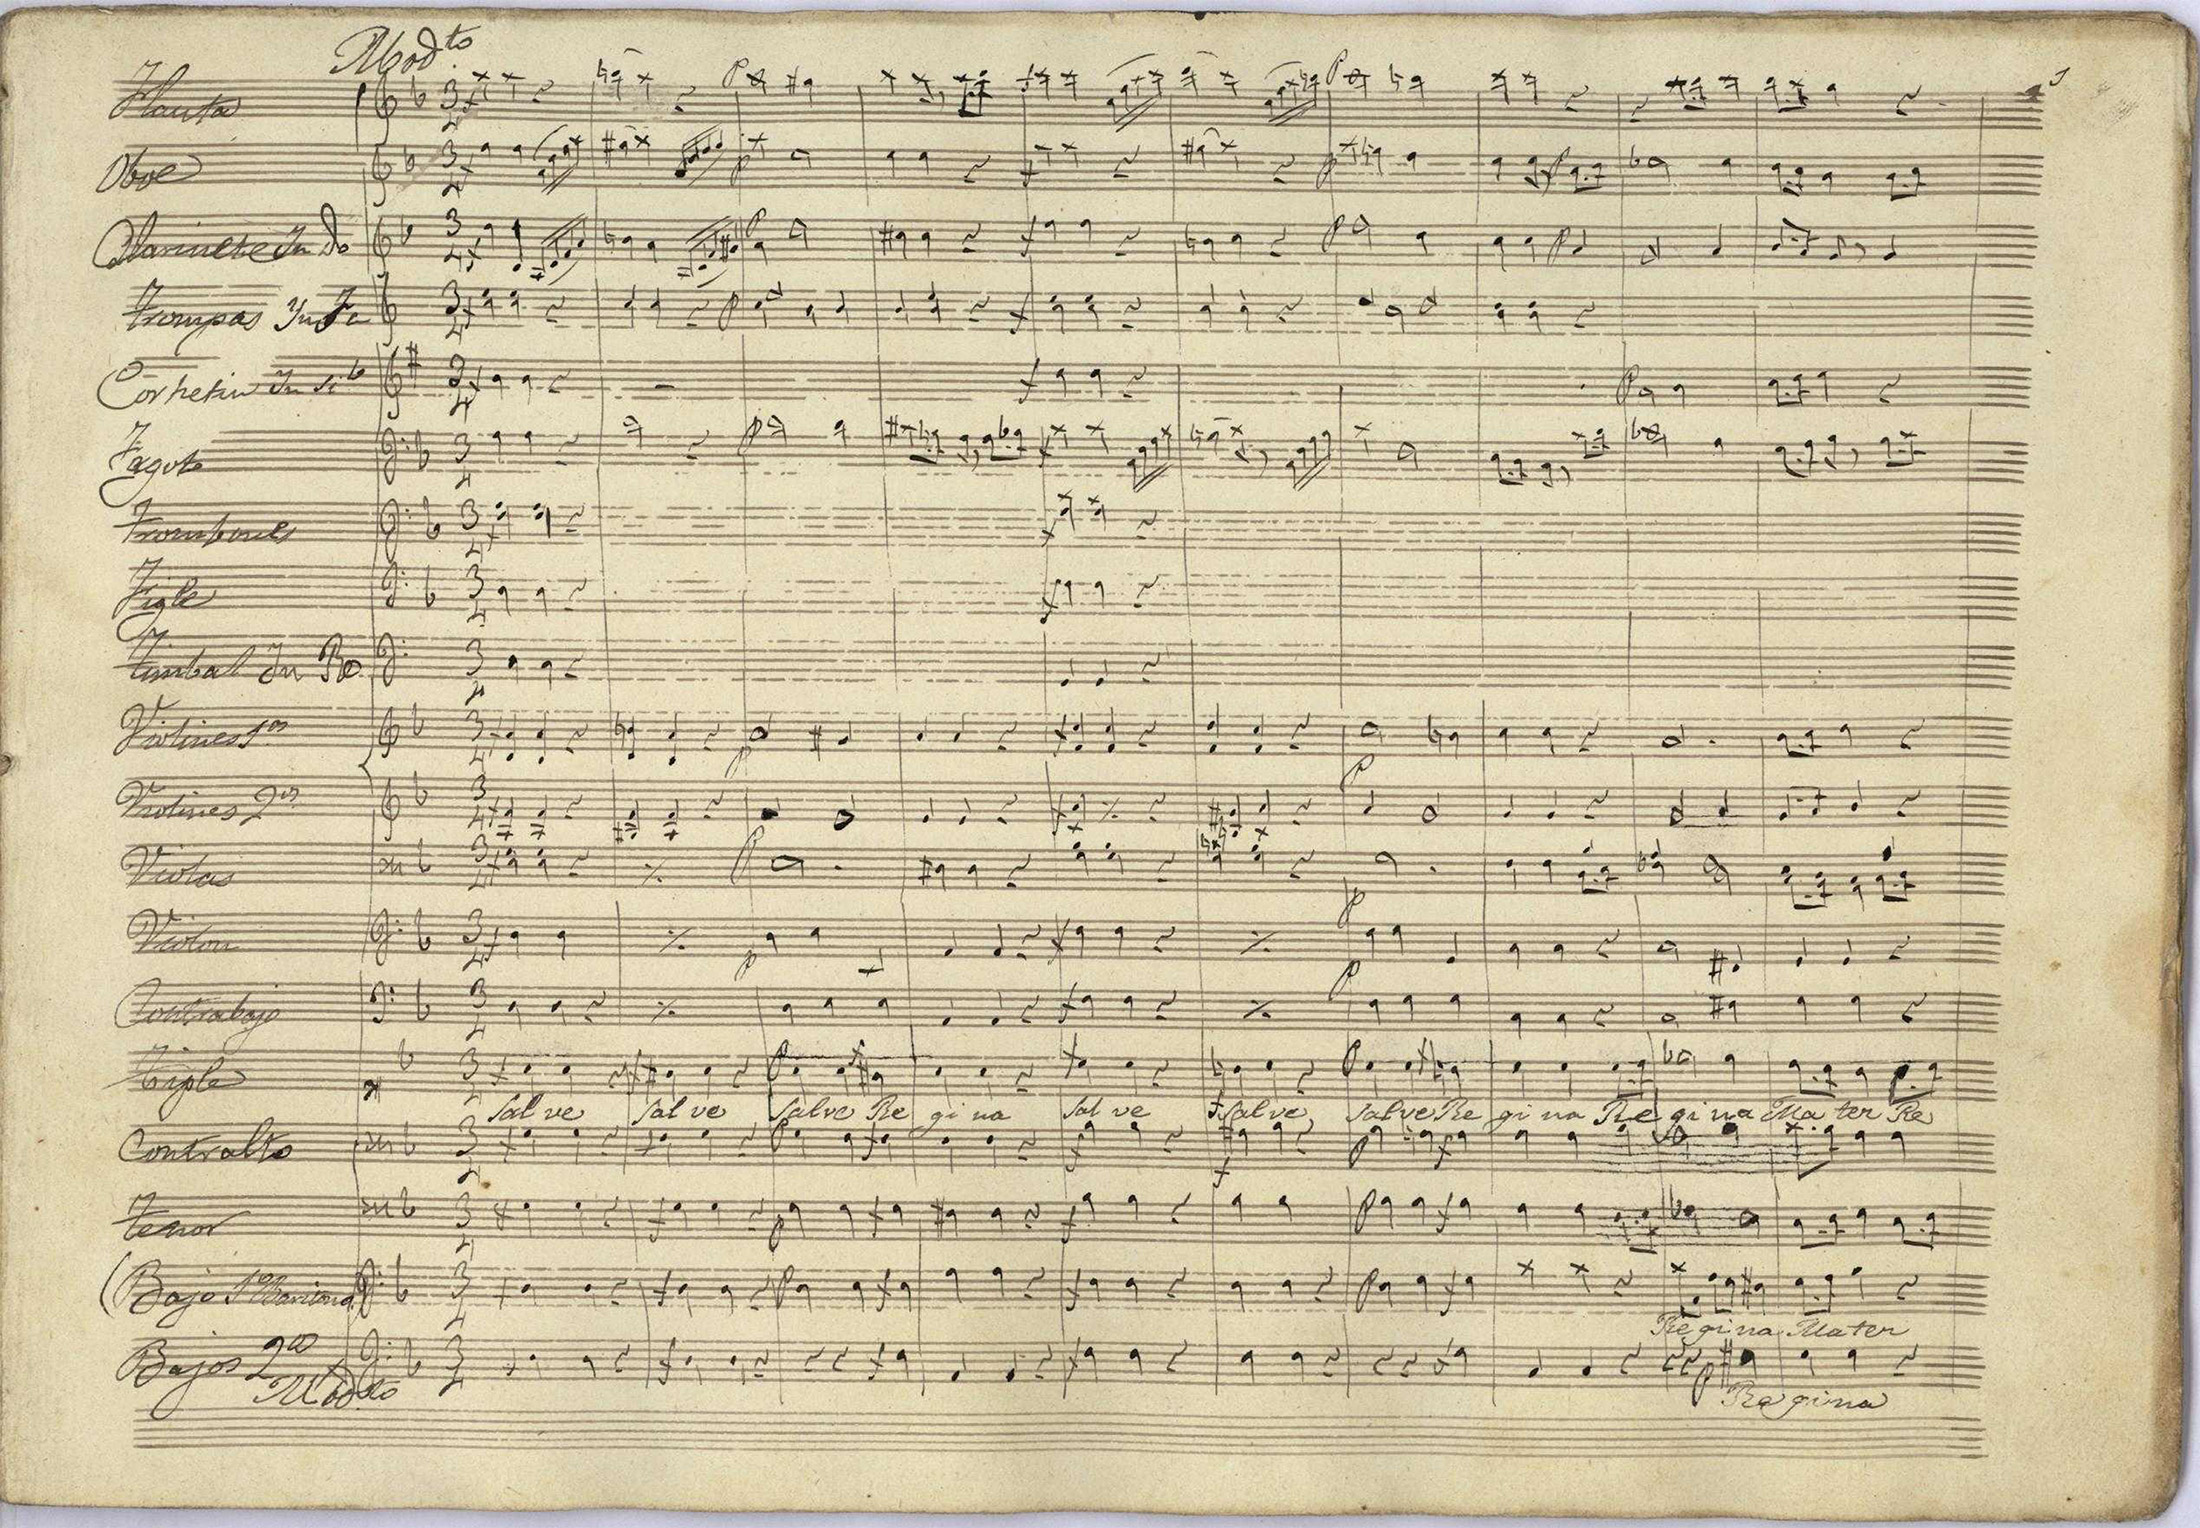 Modto
Flauta
Oboe
Clarinete In Do
Trompas In Fa
Cornetin In Sib
Fagote
Trombones
Figle
Timbal In Re
Violines 1os
Violines 2os
Violas
Violon
Contrabajo
Tiple
Sal ve Sal ve Salve Re gi na Sal ve Salve Salve Re gi na Re gi na Ma ter Re
Contralto
Tenor
Bajo 1o Baritono
Re gi na Mater
Bajos 2os
Modto
Re gi na